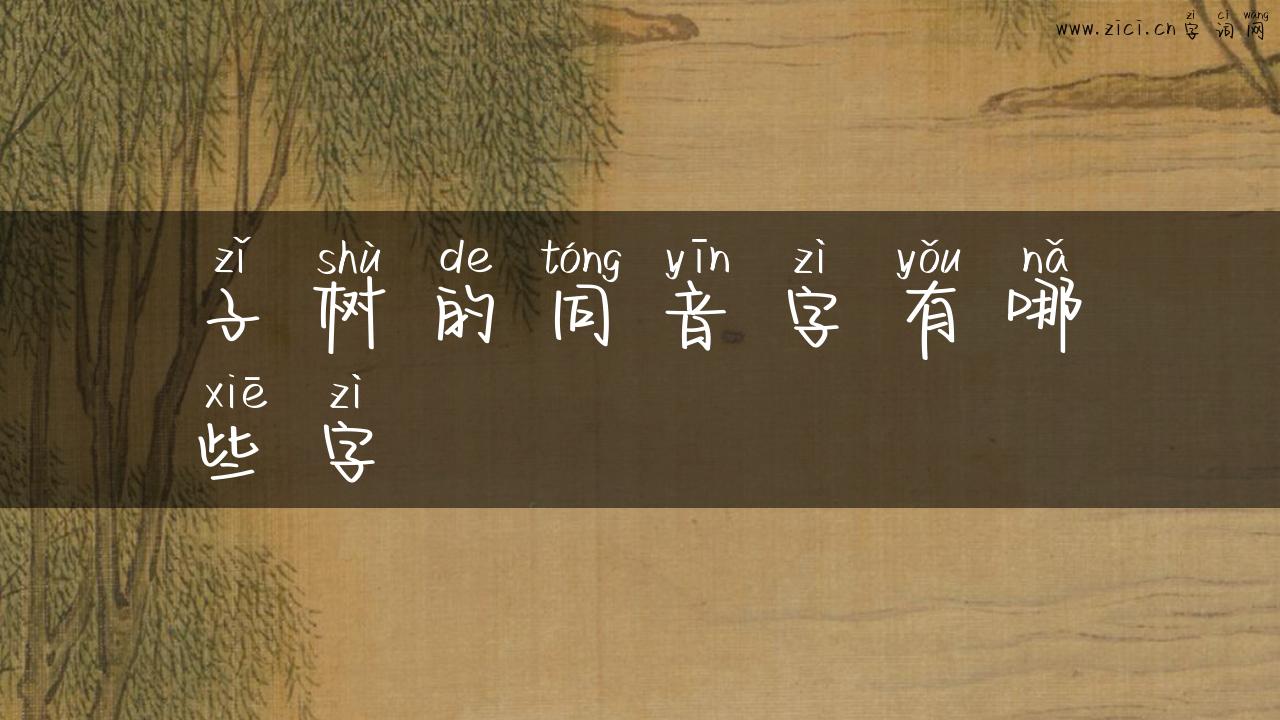 zì cí wǎng
www.zici.cn 字词网
zǐ shù de tóng yīn zì yǒu nǎ
子树的同音字有哪
xiē zì
些字